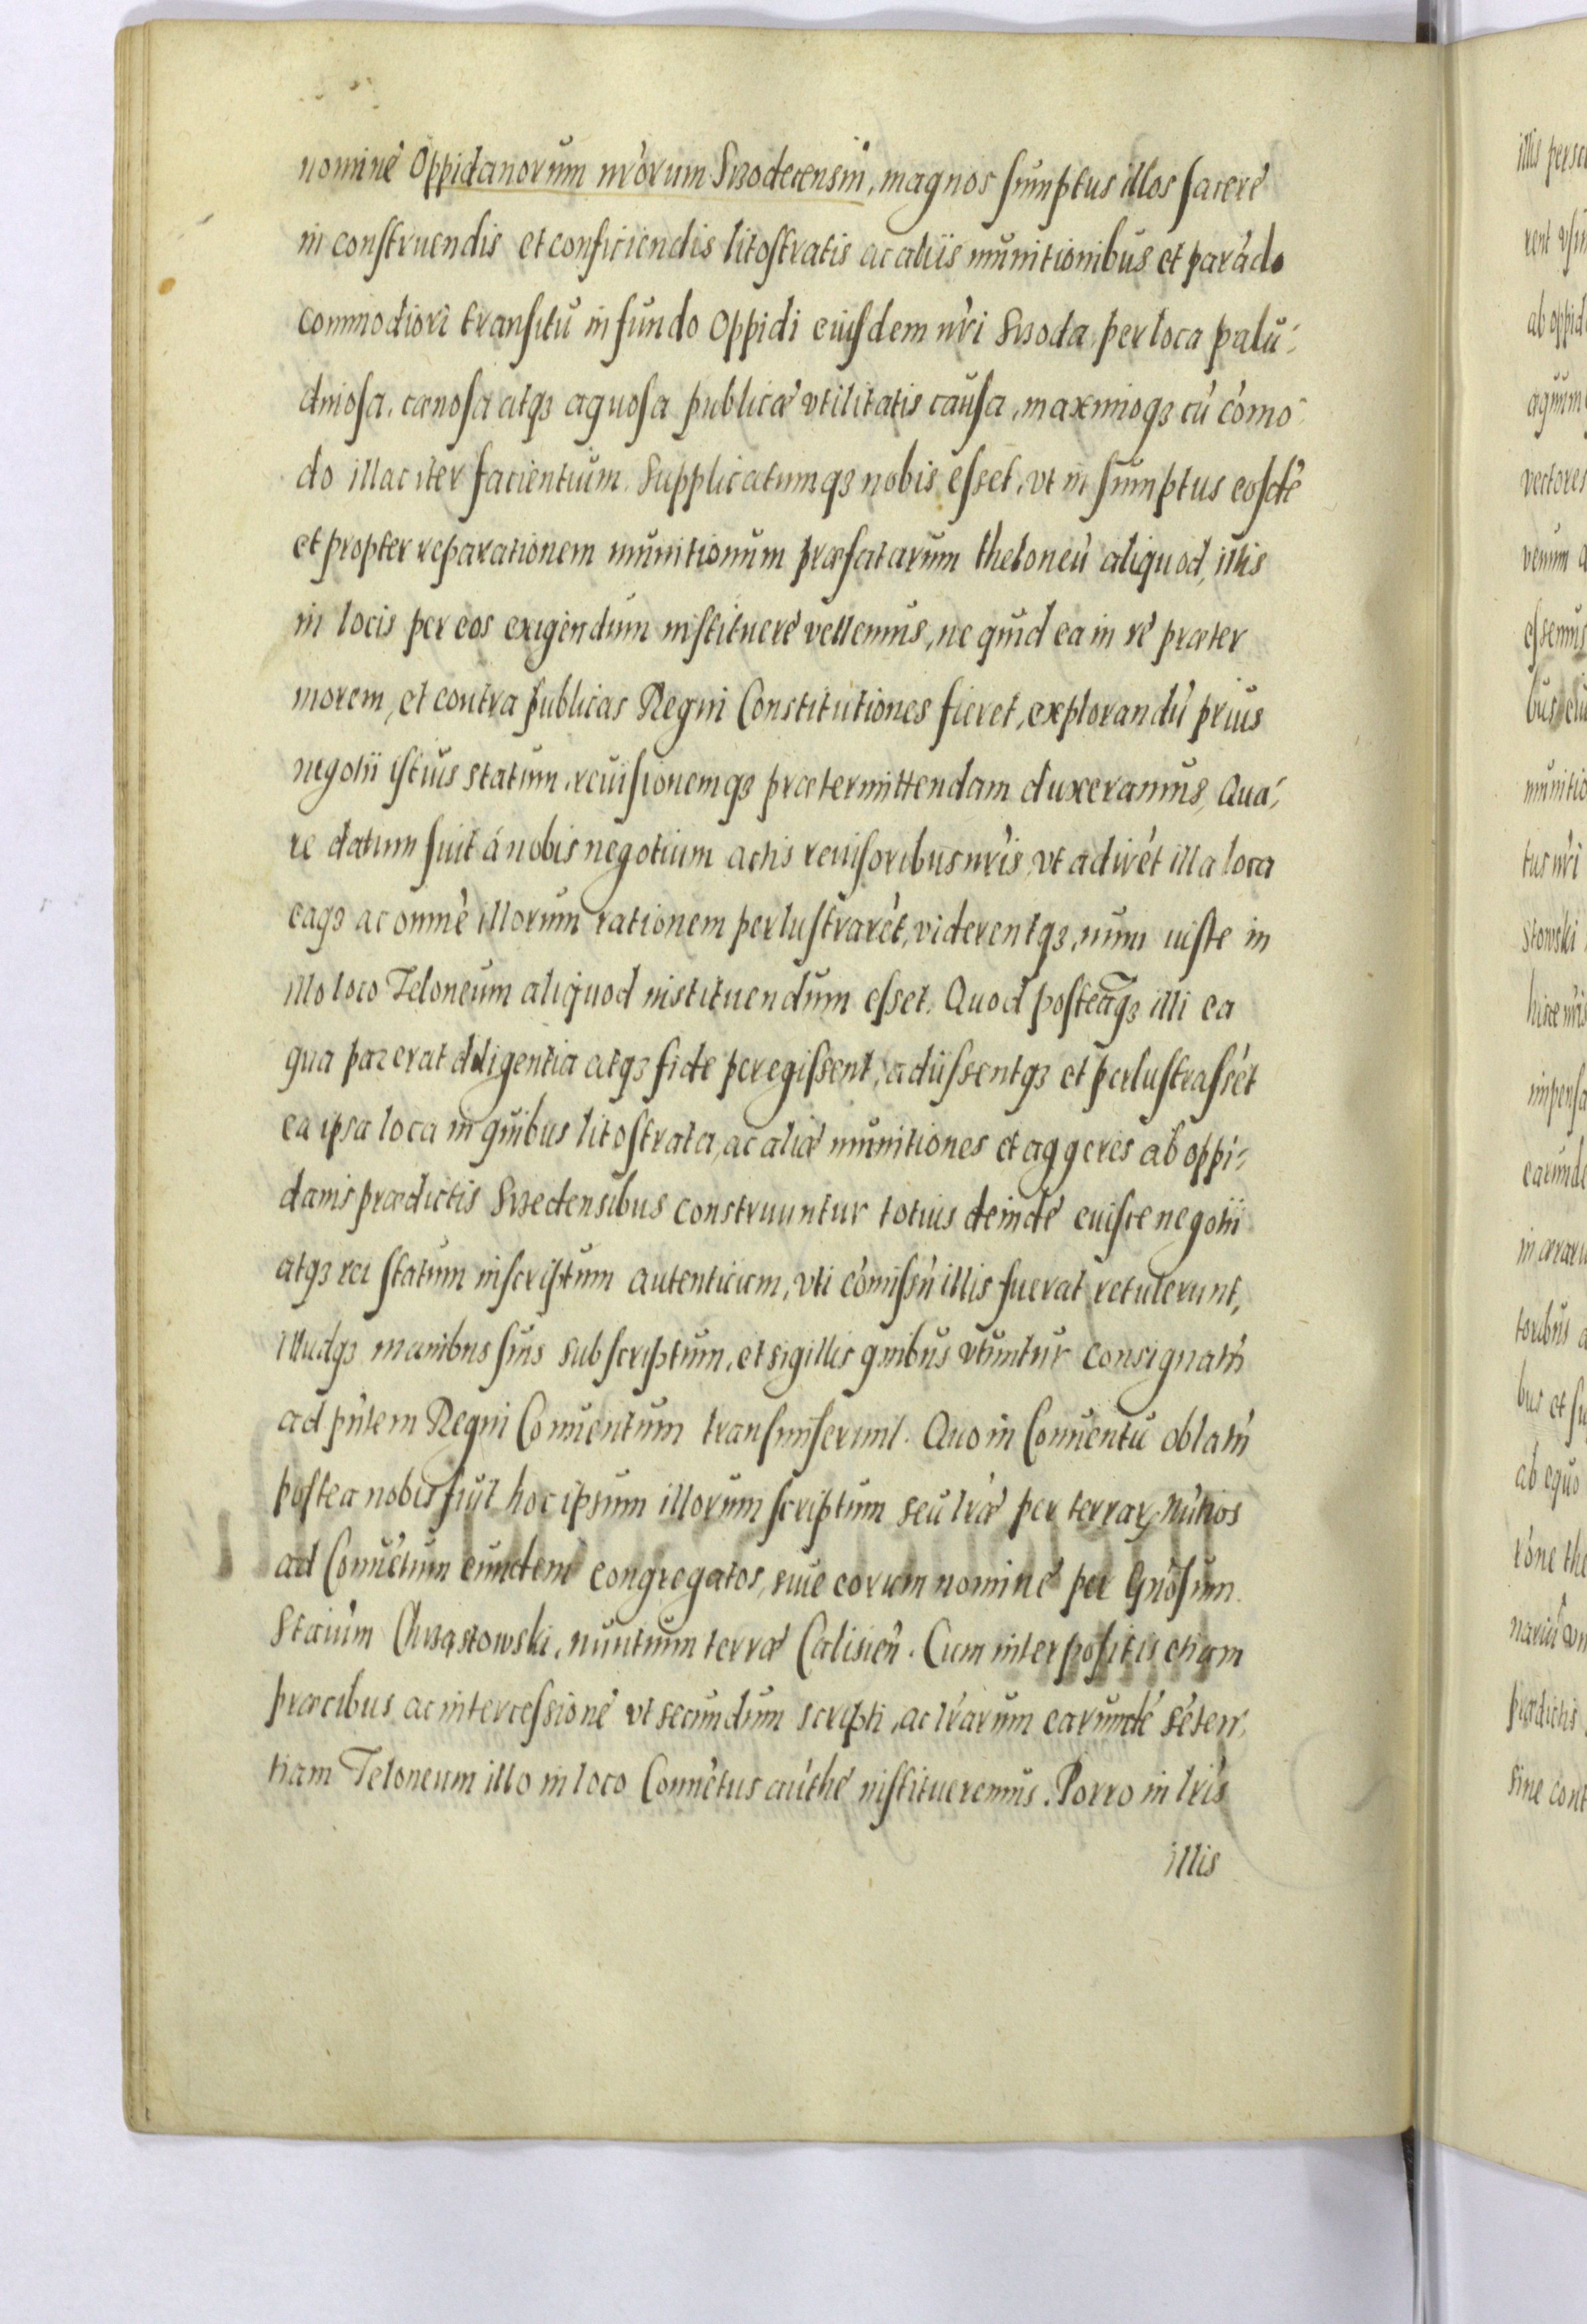 nominé Oppidanorum nŕorum Srzodecensiū, magnos sumptus illos faceré
in construendis et conficiendis litostratis ac aliis munitionibus et parádo
commodiori transitu in fundo Oppidi eiusdem nŕi Srzoda, per loca palu-
dinosa, cœnosa atqȝ aquosa publicæ vtilitatis causa, maximoqȝ cū cōmo-
do illac iter facientium. Supplicatumqȝ nobis esset, vt in sumptus eosdē
et propter reparationem munitionum præfatarum theloneū aliquod, illis
in locis per eos exigendum instituere vellemus, ne quid ea in ré præter
morem, et contra publicas Regni Constitutiones fieret, explorandū prius
negotii istius statum, reuisionemqȝ prætermittendam duxeramus, Qua-
re datum fuit á nobis negotium actis reuisoribus nŕis, vt adirēt illa loca
eaqȝ ac omnē illorum rationem perlustrarēt, viderentqȝ, num iuste in
illo loco Teloneum aliquod instituendum esset. Quod posteaqȝ illi ea
qua par erat diligentia atqȝ fide peregissent, adiissentqȝ et perlustrassēt
ea ipsa loca in quibus litostrata, ac aliæ munitiones et aggeres ab oppi-
danis prædictis Srzedensibus construuntur totius deinde euisce negotii
atqȝ rei statum inscriptum autenticum, vti cōmissū illis fuerat retulerunt,
Illudqȝ manibus suis subscriptum, et sigillis quibus vtuntur consignatū
ad pn̄tem Regni Conuentum transmiserunt. Quo in Conuentu oblatū
postea nobis fuit hoc ipsum illorum scriptum seu lŕæ per terrarꝝ Nūtios
ad Conuētum eundem congregatos, siue eorum nominé per Gn̄osum
Stāium Chrząstowski, nuntium terræ Calisieñ. Cum interpositis etiam
præcibus ac intercessioné vt secundum scripti, ac lŕarum earundē sēten-
tiam Teloneum illo in loco Conuētus authē institueremus. Porro in lŕis
illis